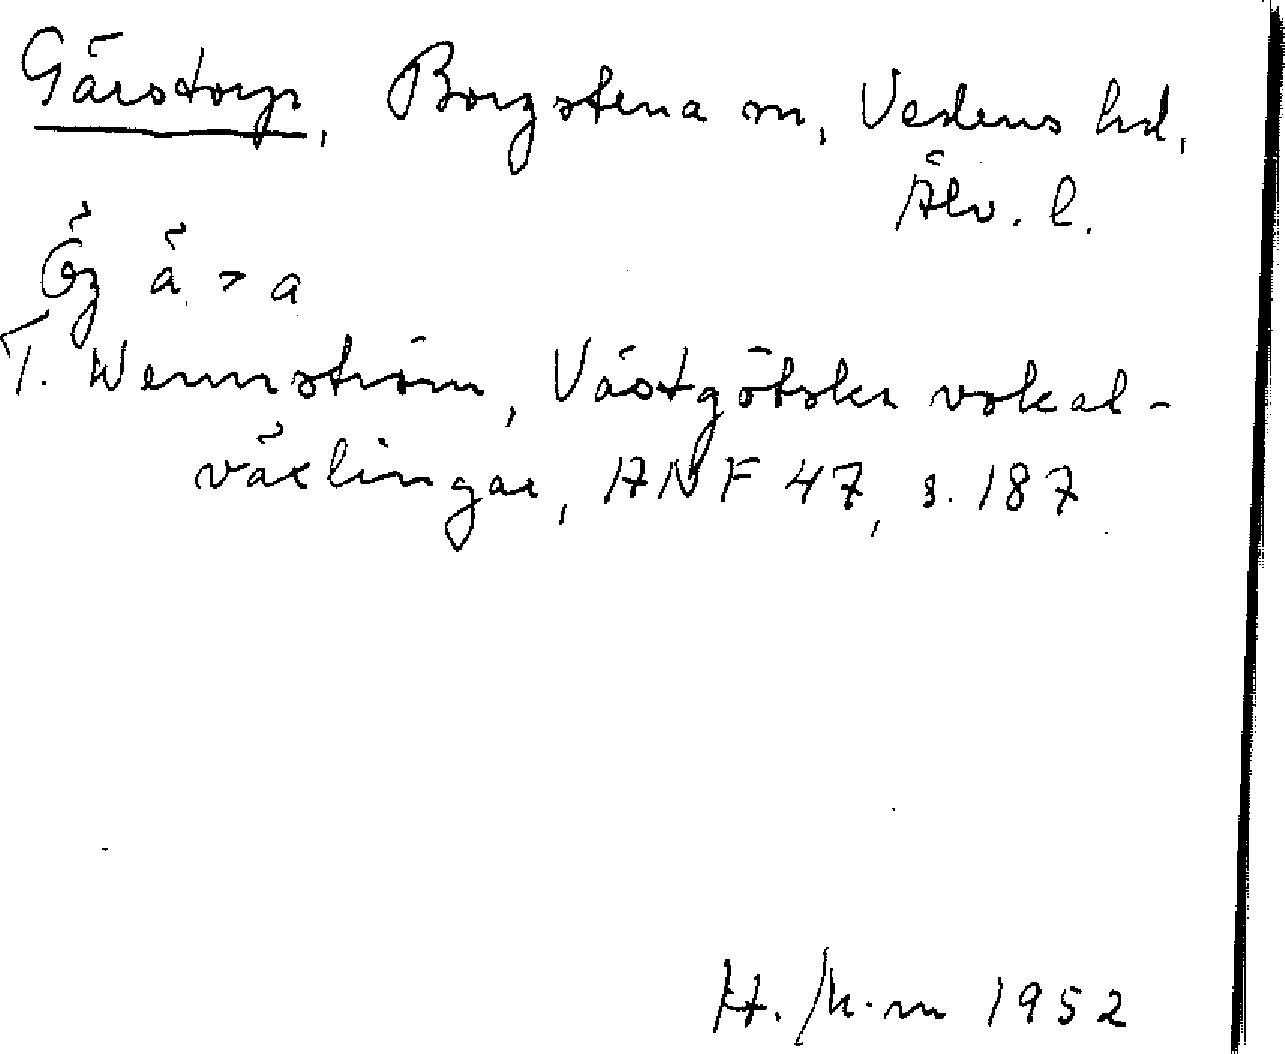 Gärstorp, Borgstena sn, Vedens hd,
Älv. l.
Ög ä > a
T. Wennström, Västgötska vokal-
växlingar, ANF 47, s. 187
1952